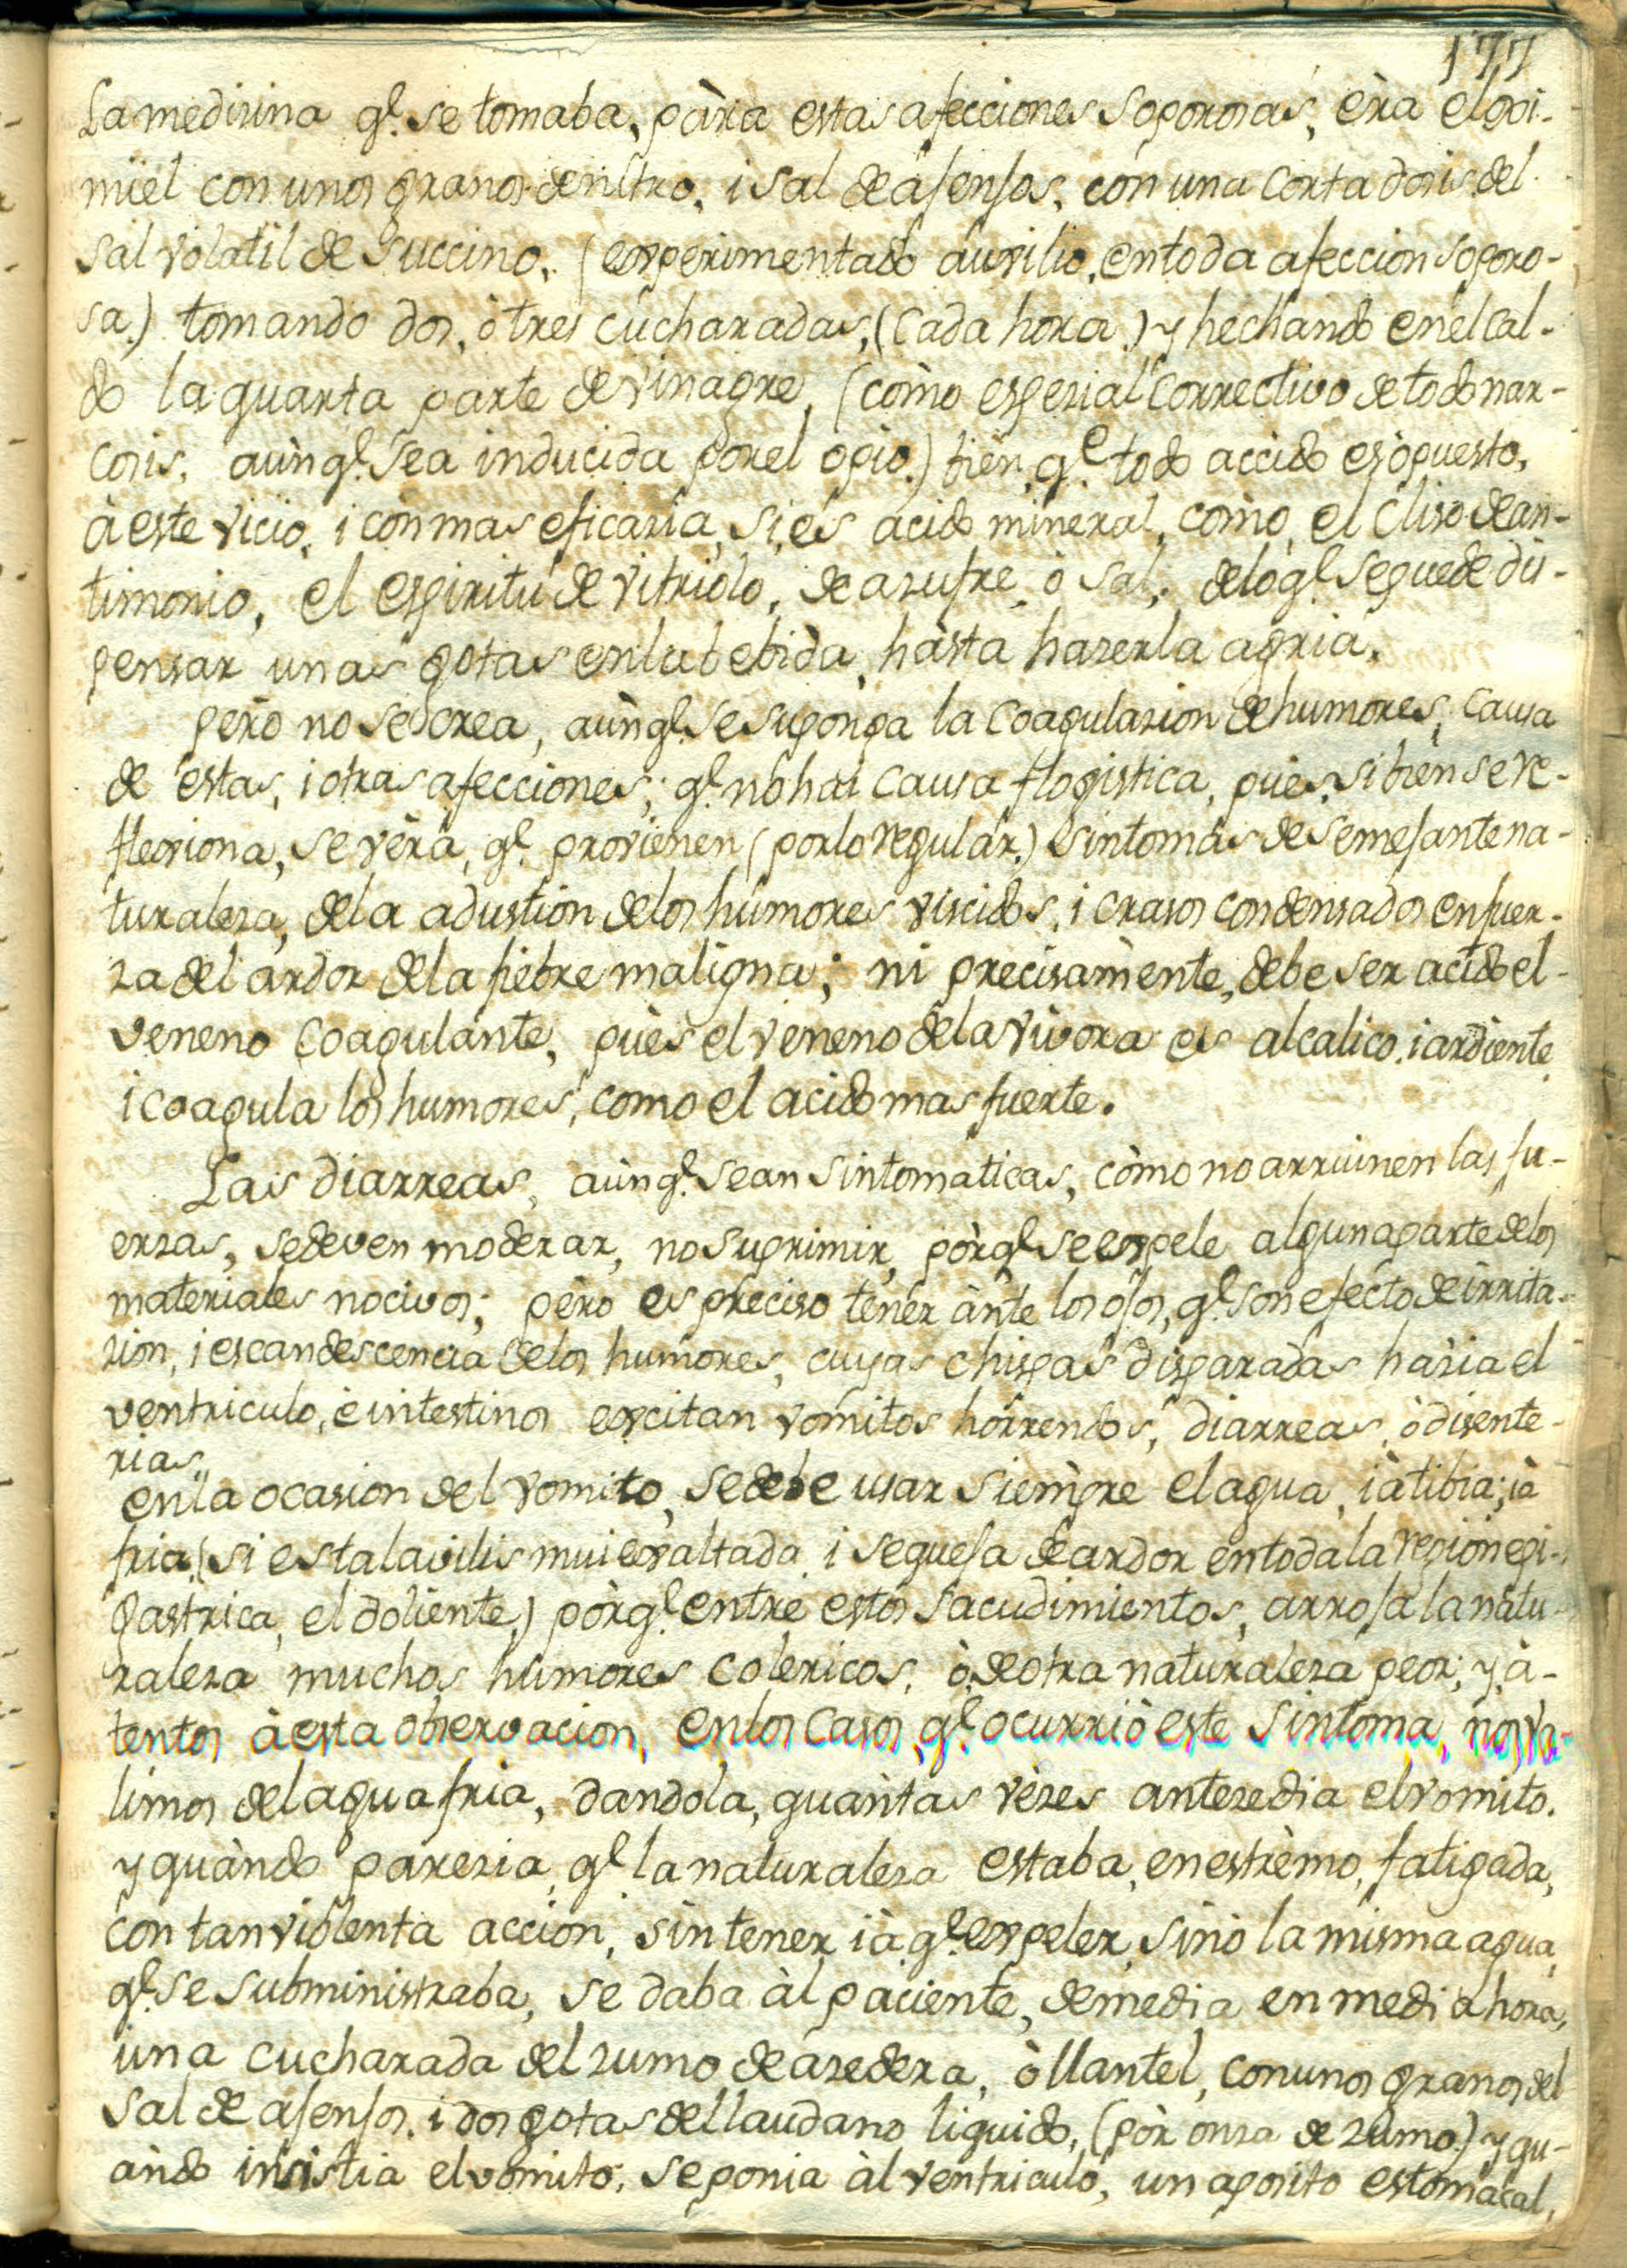 177
La medisina q.l se tomaba, pàra estas afecciones soporosas, èra el oxi-
miel con unos granos de nitro, i sal de asensos, con una corta dosis del
sal volatil de Succino, (experimentado auxilio, en toda afeccion soporo-
sa.) tomando dos, ò tres cucharadas, (cada hora.) y hechando en el cal-
do la quarta parte de vinagre, (còmo espesial correctivo de todo nar-
cosis, aùnq.l sea inducida por el opio.) bien q.e todo accido es òpuesto,
à este vicio, i con mas eficasia, si es acido mineral, còmo, el Cliso de an-
timonio, el espiritu de vitriolo, de asufre, ò sal, de lo q.l se puede dis-
pensar unas gotas en la bebida, hàsta haserla agria.
pèro no se crea, aùnq.l se suponga la coagulasion de humores, causa
de estas, i otras afecciones, q.l no hai causa flogistica, pues, si bien se re-
flexiona, se vèrà, q.l provienen (por lo regular.) sintomas de semejante na-
turalesa, de la adustion de los humores viscidos, i crasos condensados en fuer-
za del ardor de la fiebre maligna; ni precisamènte, debe ser acido el
veneno coagulante, pùes el veneno de la vivora es alcalico, i ardiente,
i coagula los humores, como el acido mas fuerte.
Las diarreas, aùnq.l sean sintomaticas, còmo no arruinen las fu-
ersas, se deven moderar, no suprimir, pòrq.l se expele alguna parte de los
materiales nocivos; pèro es preciso tener ànte los ojos, q.l son efecto de irrita-
sion, i escandescencia de los humores, cuyas chispas disparadas hàsia el
ventriculo, è intestinos excitan vomitos horrendos, diarreas, ò disente-
rias.
en la ocasion del vomito, se debe usar siempre el agua, ià tibia; ià
fria, (si esta la vilis mui exaltada, i se queja de ardor en toda la region epi-
gastrica, el doliente,) pòrq.l entre estos sacudimientos, arroja la natu-
ralesa muchos humores colericos, ò de otra naturalesa peor; y à-
tentos à esta observacion, en los casos, q.l ocurriò este sintoma, nos va-
limos del agua fria, dandola, quantas vèses antesedia el vomito.
y quàndo paresia, q.l la naturalesa estaba, en estrèmo, fatigada,
con tan violenta accion, sin tener ià q.l expeler, sinò la misma agua,
q.l se subministraba, se daba àl paciente, de media en media hora,
una cucharada del sumo de asedera, ò llantel, con unos granos del
sal de asensos, i dos gotas del laudano liquido, (pòr onsa de zumo.) y qu-
àndo insistia el vomito, se ponia àl ventriculo, un aposito estomacal,